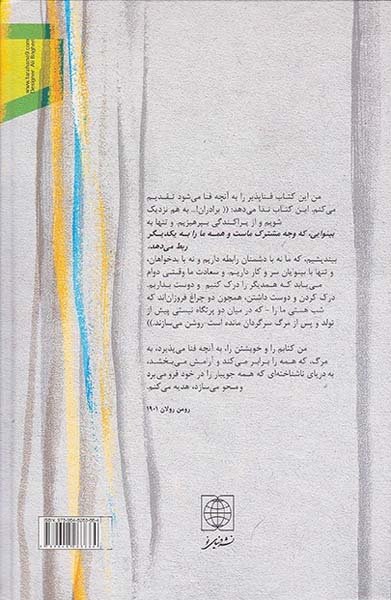 www.tarahane9.com
Designer: Ali Bagheri
من این کتاب فناپذیر را به آنچه فنا می‌شود تقدیم
می‌کنم. این کتاب ندا می‌دهد: ((برادران!.. به هم نزدیک
شویم و از پراکندگی بپرهیزیم. و تنها به
بینوایی، که وجه مشترک ماست و همه ما را به یکدیگر
ربط می‌دهد.
بیندیشیم، که ما نه با دشمنان رابطه داریم و نه با بدخواهان،
و تنها با بینوایان سر و کار داریم. و سعادت ما وقتی دوام
می‌یابد که همدیگر را درک کنیم و دوست بداریم.
درک کردن و دوست داشتن، همچون دو چراغ فروزان‌اند که
شب هستی ما را - که در میان دو پرتگاه نیستی پیش از
تولد و پس از مرگ سرگردان مانده است-روشن می‌سازند.))
من کتابم را و خویشتن را، به آنچه فنا می‌پذیرد، به
مرگ، که همه را برابر می‌کند و آرامش می‌بخشد،
به دریای ناشناخته‌ای که همه جویبار را در خود فرو می‌برد
و محو می‌سازد، هدیه می‌کنم.
رومن رولان ۱۹۰۱
نشر دنیای نو